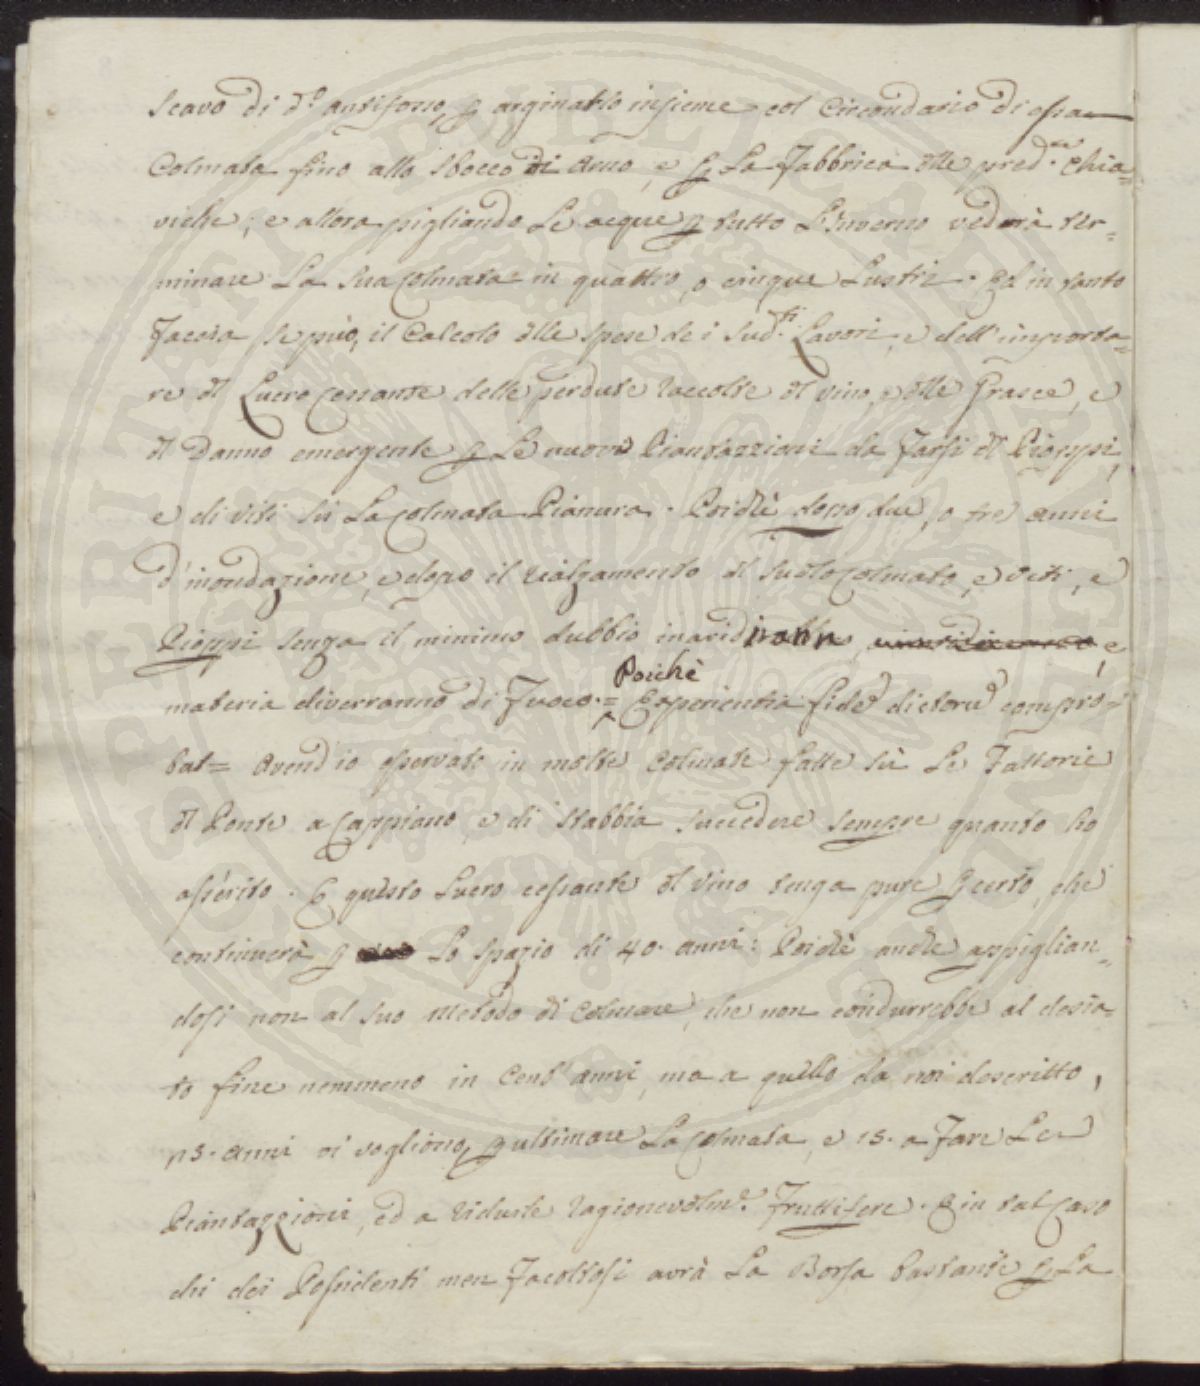 scavo di d.º antifosso, p arginarlo insieme col Circondario di essa
Colmata fino allo sbocco di Arno, e p La Fabbrica dlle pred.te Chia=
viche; e allora pigliando Le acque p tutto L'Inverno vedrà ter=
minare La sua Colmata in quattro, o cinque Lustri. Ed in tanto
Faccia se può, il Calcolo dlle spese de i sud.ti Lavori, e dell'importa=
re dl Lucro Cessante delle perdute raccolte dl vino, e dlle Grasce, e
dl Danno emergente p Le nuove Piantazzioni da Farsi dl Pioppi,
e di viti sù La Colmata Pianura. Poichè dopo due, o tre anni
d'inondazione, e dopo il rialzamento dl suolo Colmato, e viti, e
Pioppi senza il minimo dubbio inaridiranno, e
materia diverranno di Fuoco. = Poichè Experientia fide dictorū compro=
bat= Avend'io osservato in molte Colmate fatte sù Le Fattorie
dl Ponte a Cappiano, e di Stabbia succedere sempre quanto ho
asserito. E questo Lucro cessante dl vino tenga pure p certo, che
continuerà p Lo spazio di 40. anni: Poichè anche appiglian=
dosi non al suo Metodo di Colmare, che non condurrebbe al desia=
to fine nemmeno in Cent'anni, ma a quello da noi descritto,
25. anni vi vogliono, p ultimare La Colmata, e 15. a Fare Le
Piantazzioni, ed a ridurle ragionevolm.e Fruttifere. E in tal Caso
chi dei Possidenti men Facoltosi avrà La Borsa bastante p La